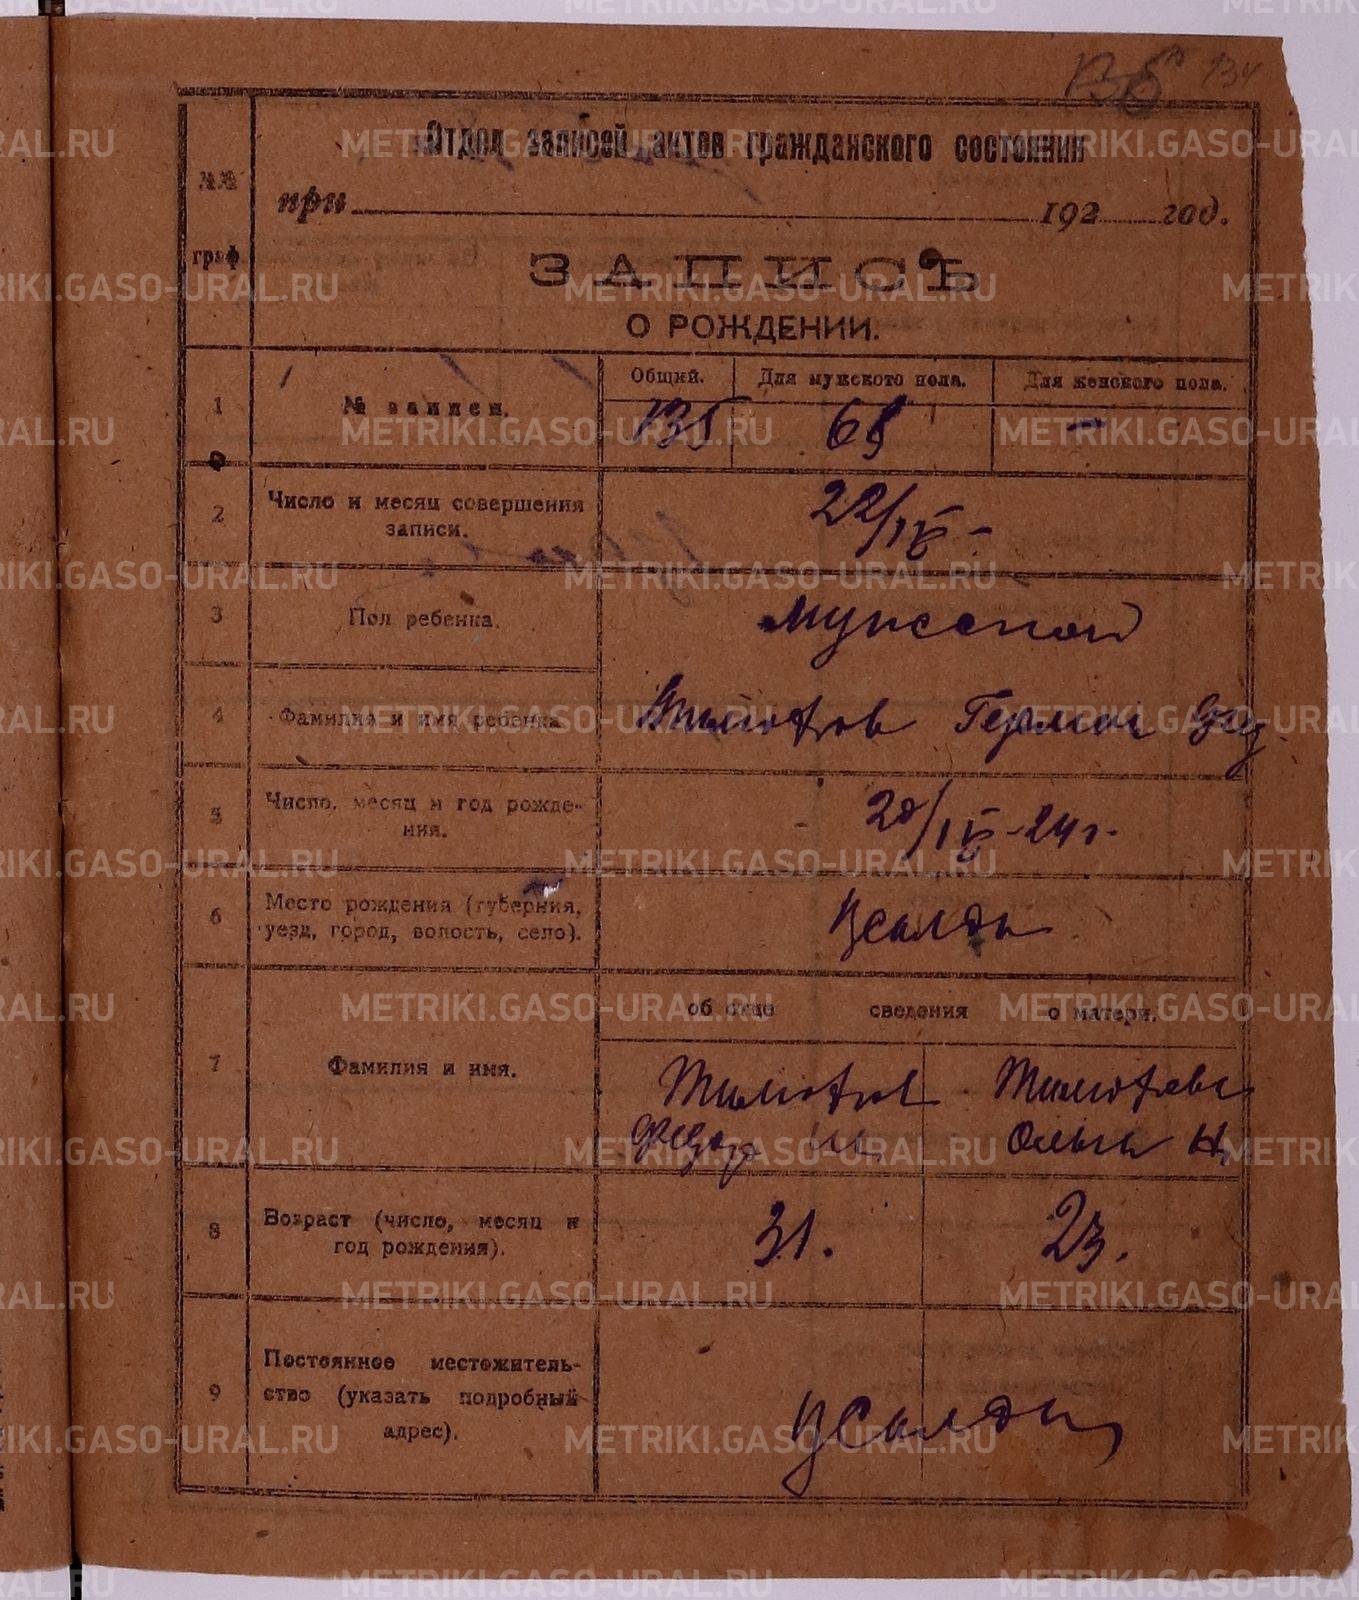 134
№№ граф
Отдел записей актов гражданского состояния
при 192 год.
ЗАПИСЬ
О РОЖДЕНИИ.
1
№ записи.
Общий.
Для мужского пола.
Для женского пола.
135
68
-
2
Число и месяц совершения
записи.
22/IV -
3
Пол ребенка.
мужской
4
Фамилия и имя ребенка
Герман
5
Число, месяц и год рожде-
ния.
20/IV-24 г.
6
Место рождения (губерния,
уезд, город, волость, село).
Усалды
7
Фамилия и имя.
об отце сведения о матери.
Федор И
Ольга Н
8
Возраст (число, месяц и
год рождения).
31.
23.
9
Постоянное местожитель-
ство (указать подробный
адрес).
METRIKI.GASO-URAL.RU